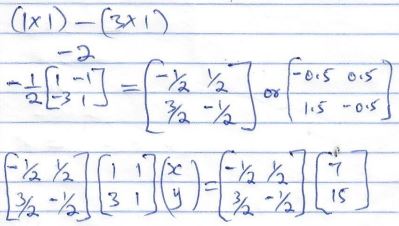 (1x1) - (3x1)
-2
-1/2 [1 -1 -3 1] = [-1/2 1/2 3/2 -1/2] or [-0.5 0.5 1.5 -0.5]
[-1/2 1/2 3/2 -1/2] [1 1 3 1] (x y) = [-1/2 1/2 3/2 -1/2] [7 15]